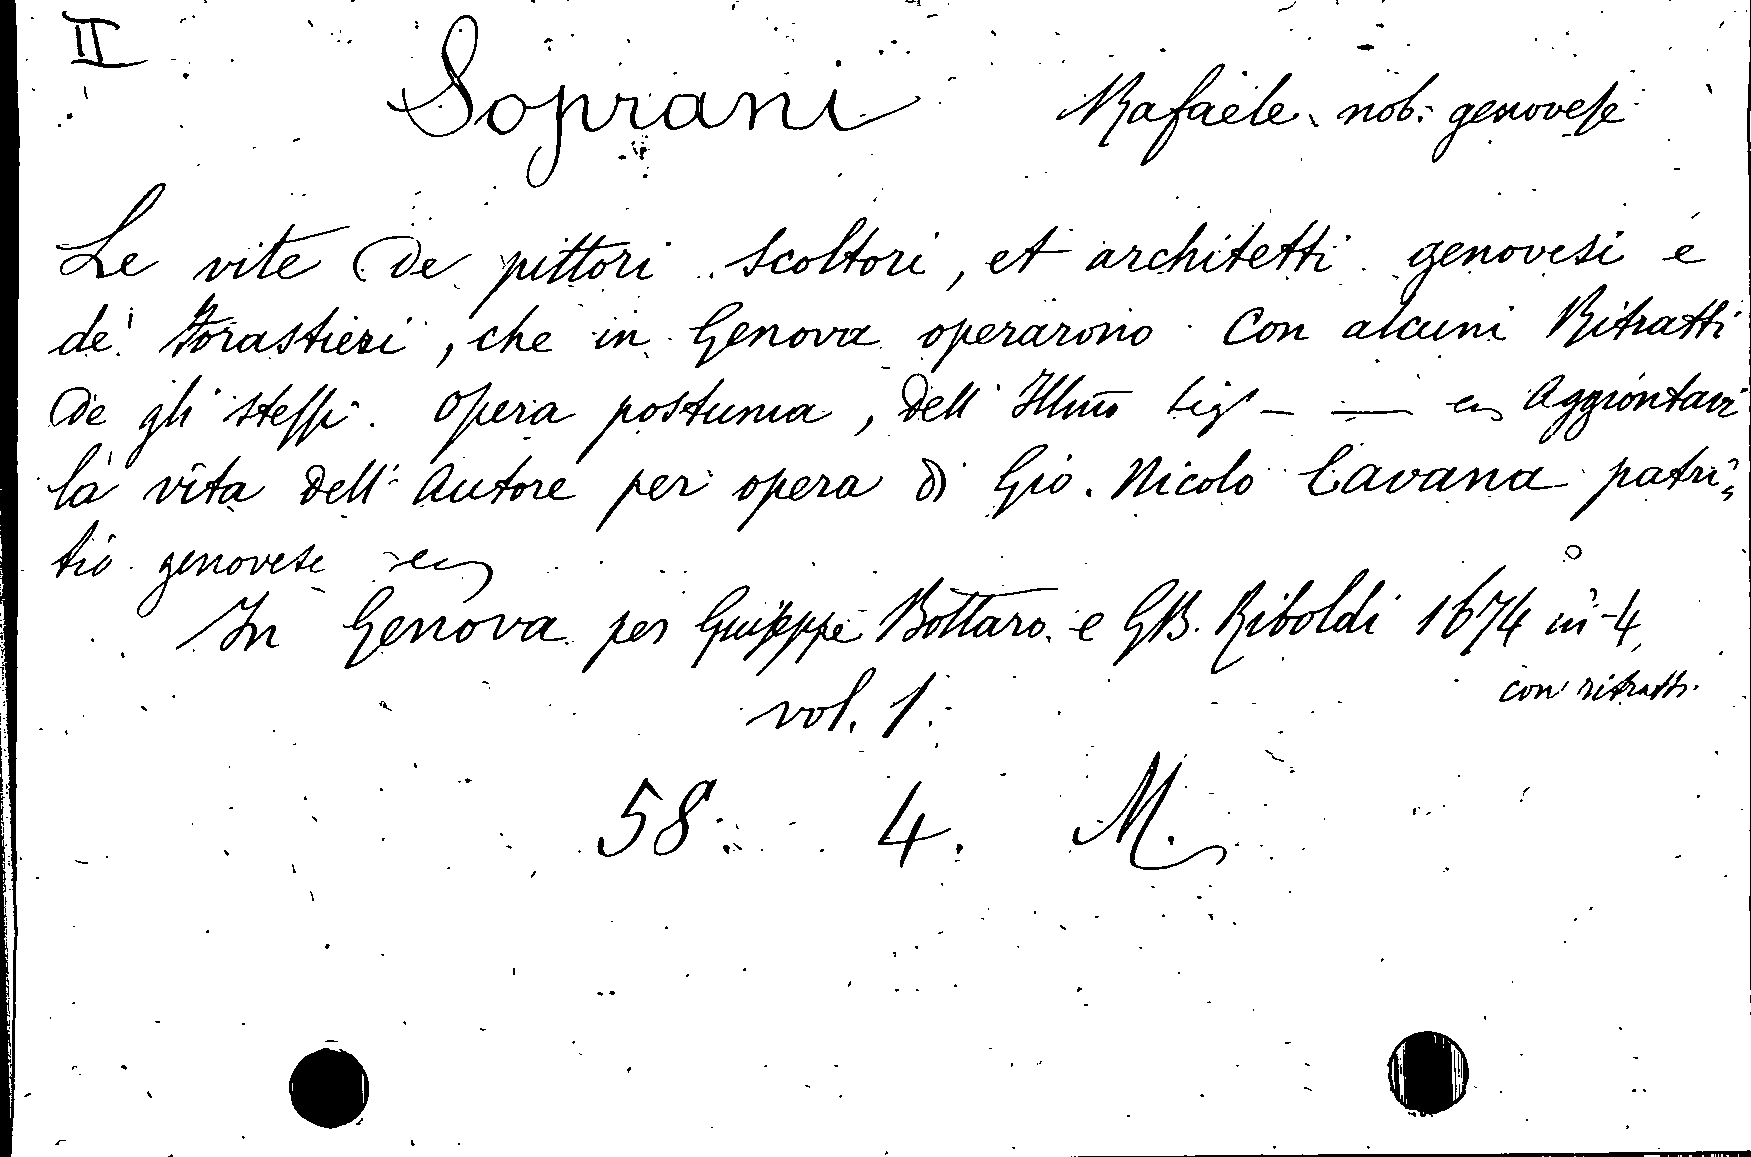 II
Soprani Rafaele nob: genovese
Le vite de pittori scoltori, et architetti genovesi e
de' Forastieri, che in Genova operarono Con alcuni Ritratti
de gli stessi. Opera postuma, dell' Illmo Sig — — Aggiontavi
la vita dell' Autore per opera di Gio. Nicolo Cavana patri=
tio genovese
In Genova per Giuseppe Bottaro e GB. Riboldi 1674 in-4°
con ritratti.
vol. 1.
58. 4. M.